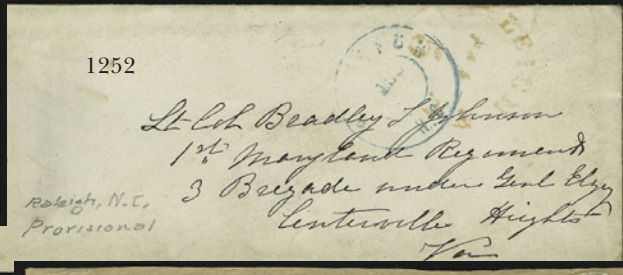 1252
Lt Col Bradley T Johnson
1st Maryland Regiment
3 Bregade under Genl Elzy
Centerville Hights
Va
Raleigh, N.C,
Provisional